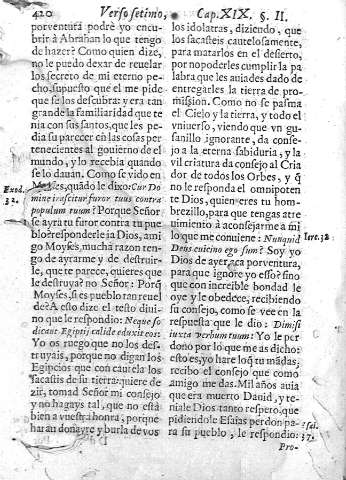 420 Verso setimo, Cap. XIX. §. II.
porventura podrè yo encu-
brir à Abrahan lo que tengo
de hazer? Como quien dize,
no le puedo dexar de reuelar
los secreto de mi eterno pe-
cho, supuesto que el me pide
que se los descubra: y era tan
grande la familiaridad que te
nia con sus santos, que les pe-
dia su parecer en las cosas per
tenecientes al gouierno del
mundo, y lo recebia quando
se lo dauan. Como se vido en
Moyses, quãdo le dixo: Cur Do
mine irascitur furor tuus contra
populum tuum? Porque Señor
se ayra tu furor contra tu pue
blo? respondele ya Dios, ami
go Moyses, mucha razon ten-
go de ayrarme y de destruir-
le, que te parece, quieres que
le destruya? no Señor: Porq̃
Moyses, si es pueblo tan reuel
de? A esto dize el testo diui-
no que le respondio: Neque so
dicant Egiptij calide eduxit eos:
Yo os ruego que no los des-
truyais, porque no digan los
Egipcios que con cautela los
sacastis de su tierra: quiere de
zir, tomad Señor mi consejo
y no hagays tal, que no está
bien a vuestra honra, porque
haran donayre y burla de vos
Exod.
32.
los idolatras, diziendo, que
los sacasteis cautelosamente,
para matarlos en el desierto,
por no poderles cumplir la pa
labra que les auiades dado de
entregarles la tierra de pro-
mission. Como no se pasma
el Cielo y la tierra, y todo el
vniuerso, viendo que vn gu-
sanillo ignorante, da conse-
jo a la eterna sabiduria, y la
vil criatura da consejo al Cria
dor de todos los Orbes, y q̃
no le responda el omnipoten
te Dios, quien eres tu hom-
brezillo, para que tengas atre
uimiento à aconsejarme a mi
lo que me conuiene: Nunquid
Deus è uicino ego sum? Soy yo
Dios de ayer, aca porventura,
para que ignore yo esso? sino
que con increible bondad le
oye y le obedece, recibiendo
su consejo, como se vee en la
respuesta que le dio: Dimisi
iuxta verbum tuum: Yo le per
dono por lo que me as dicho:
esto es, yo hare loq̃ tu mãdas;
recibo el consejo que como
amigo me das. Mil años auia
que era muerto Dauid, y te-
niale Dios tanto respeto, que
pidiendole Esaias perdon pa-
ra su pueblo, le respondio:
Iere. 38
Isai.
37.
Pro-